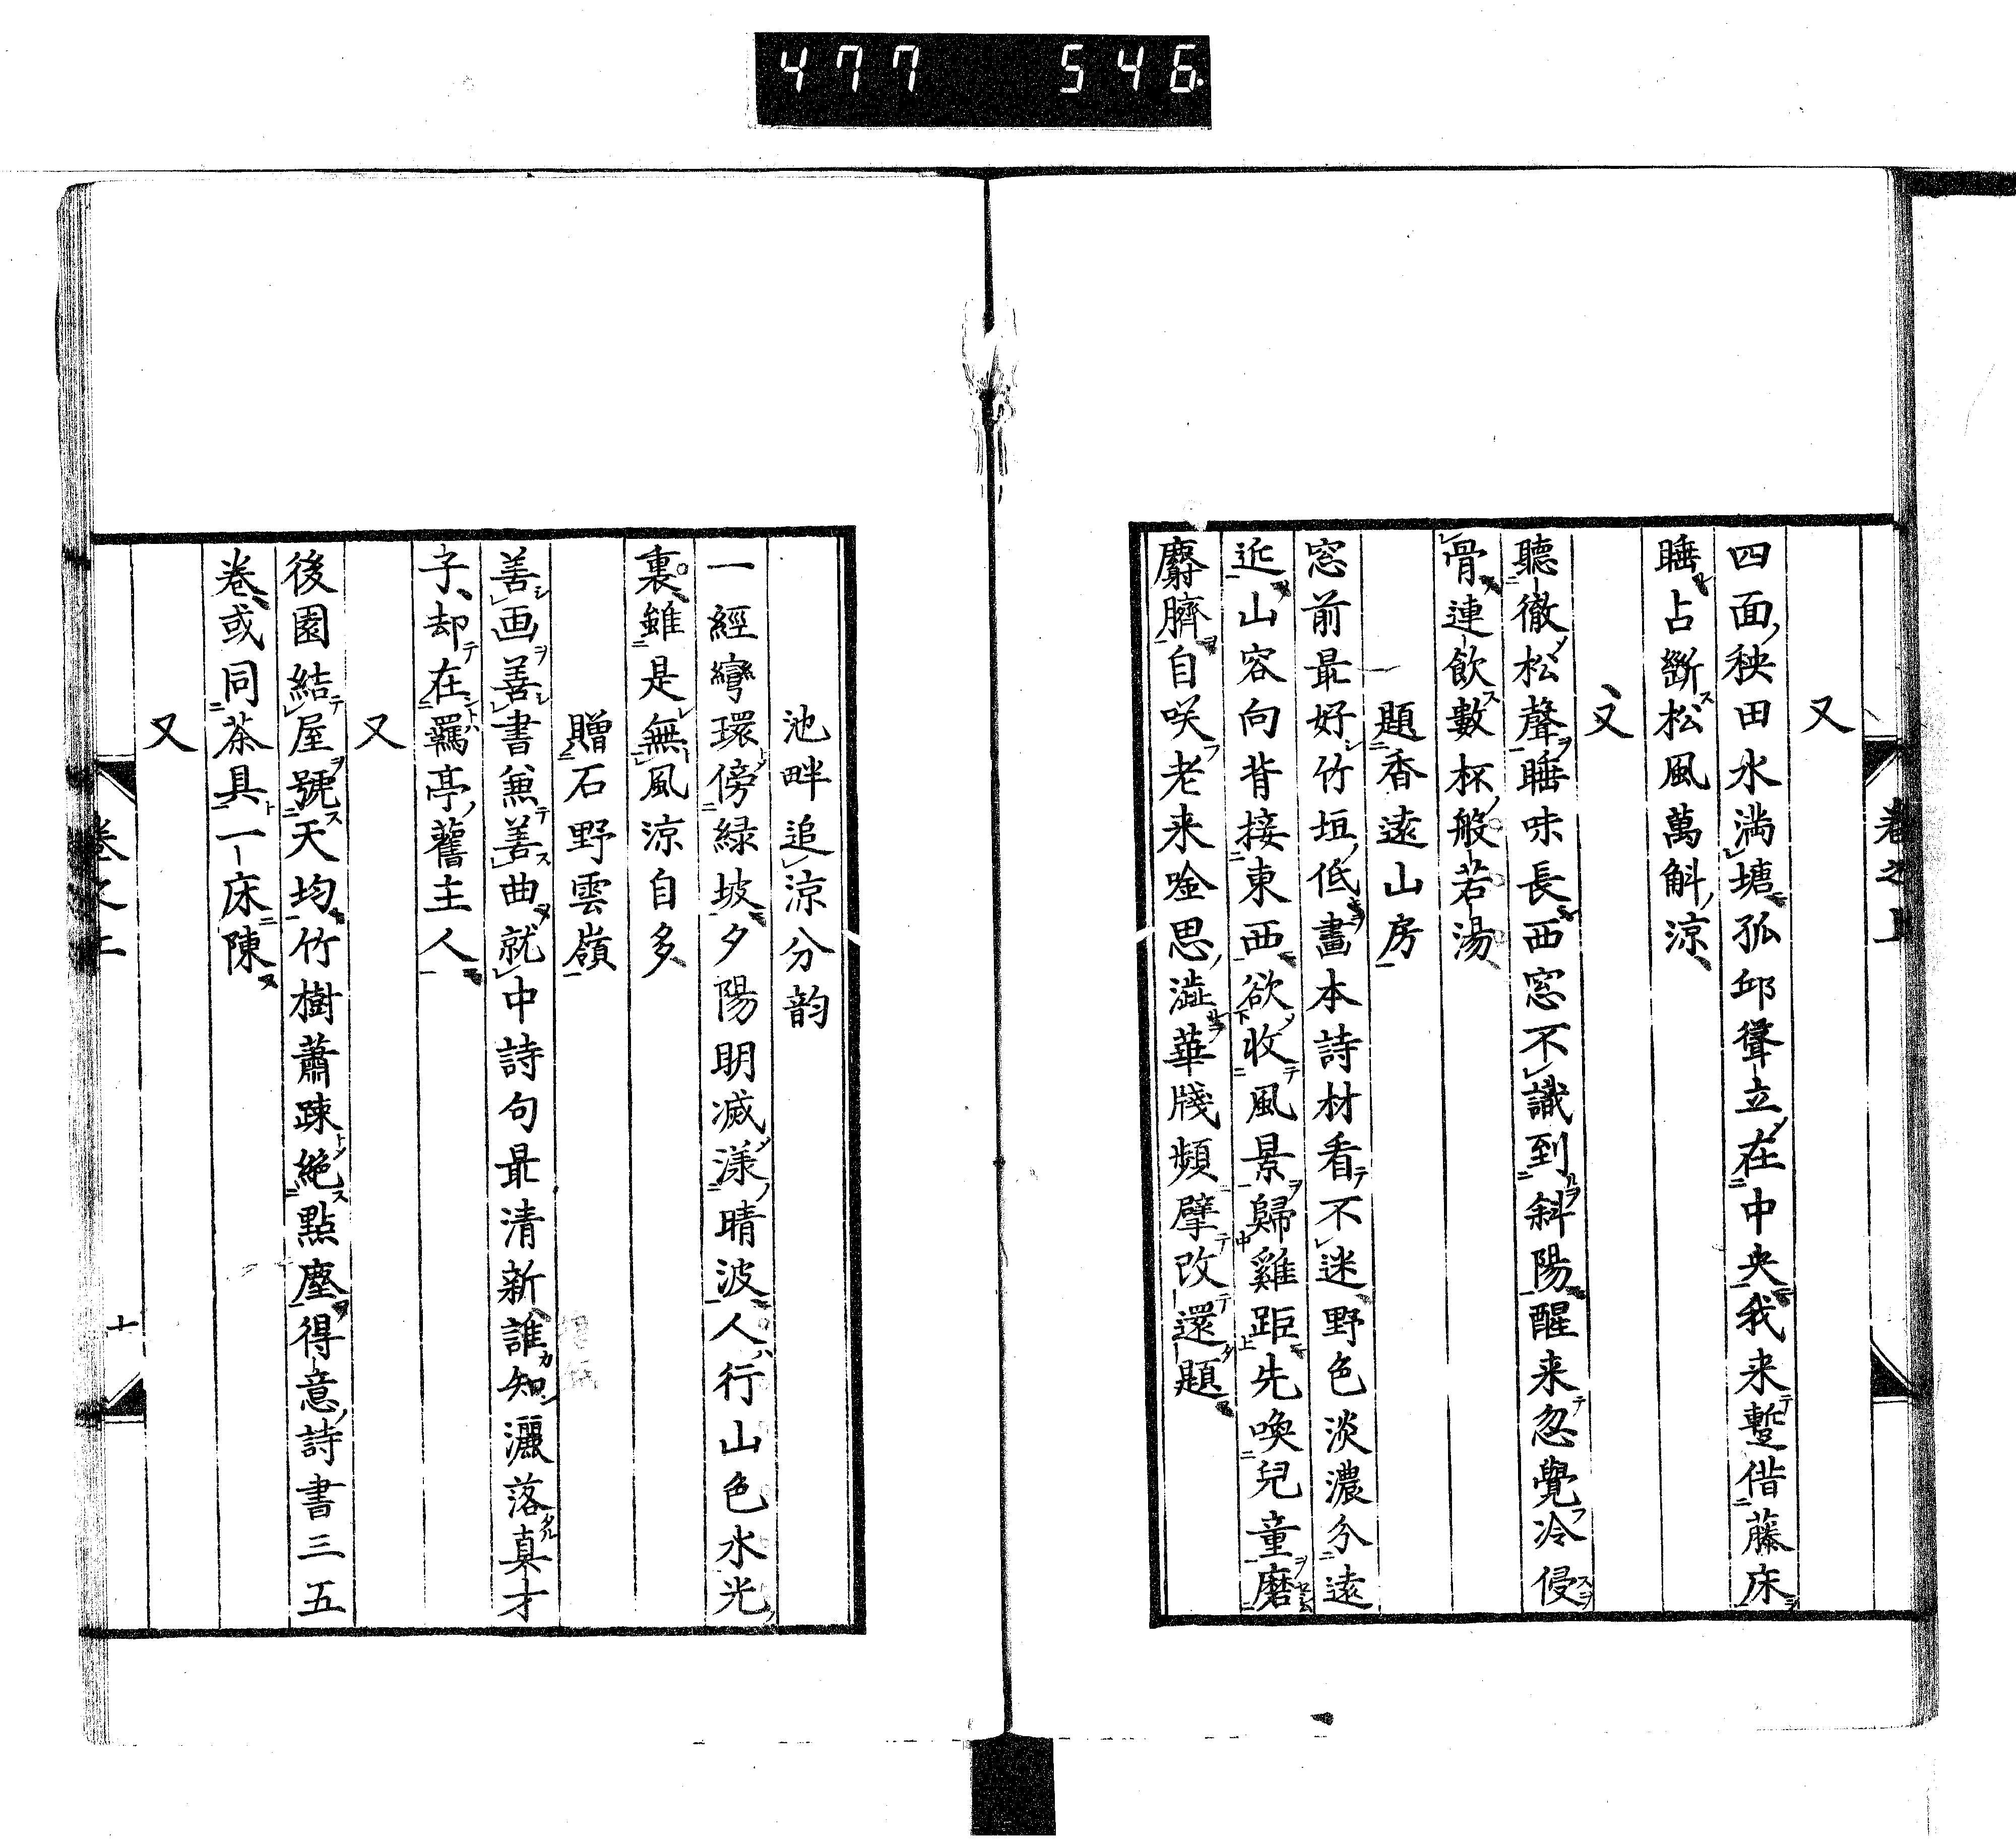 477 546
卷之上
又
四面秧田水滿塘孤邱聳立在中央我来蹔借藤床
睡占斷松風萬斛涼
又
聽徹松聲睡味長西窓不識到斜陽醒来忽覺冷侵
骨連飲數杯般若湯
題香遠山房
窓前最好竹垣低畫本詩材看不迷野色淡濃分遠
近山容向背接東西欲收風景歸雞距先喚兒童磨
麝臍自咲老来唫思澁華牋頻擘改還題
池畔追涼分韵
一經彎環傍緑坡夕陽明滅漾晴波人行山色水光
裏雖是無風涼自多
贈石野雲嶺
善画善書兼善曲就中詩句最清新誰知灑落真才
子却在羈亭舊主人
又
後園結屋號天均竹樹蕭疎絶點塵得意詩書三五
卷或同茶具一床陳
又
卷之上
十